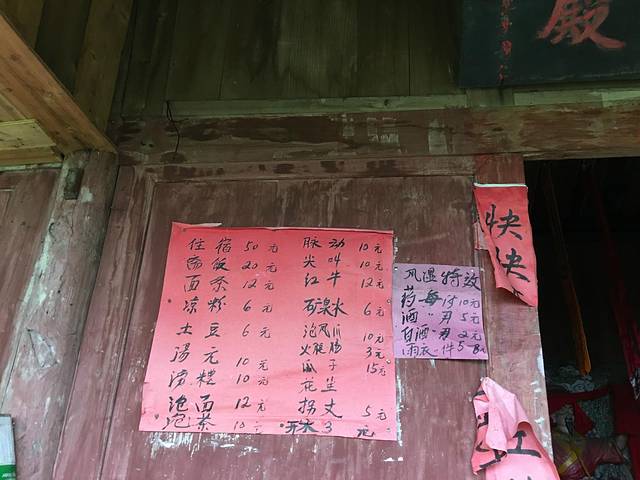 殿
住宿 50元
斋饭 20元
面条 12元
凉粉 6元
土豆 6元
汤元 10元
涝糟 10元
泡面 12元
泡茶 10元
脉动 10元
尖叫 10元
红牛 12元
矿泉水 6元
泡凤爪 10元
火腿肠 3元
瓜子 15元
花生
拐丈 5元
开水 3元
风湿特效
药 每付10元
酒 〃 5元
白酒 〃 2元
雨衣一件5-8元
快